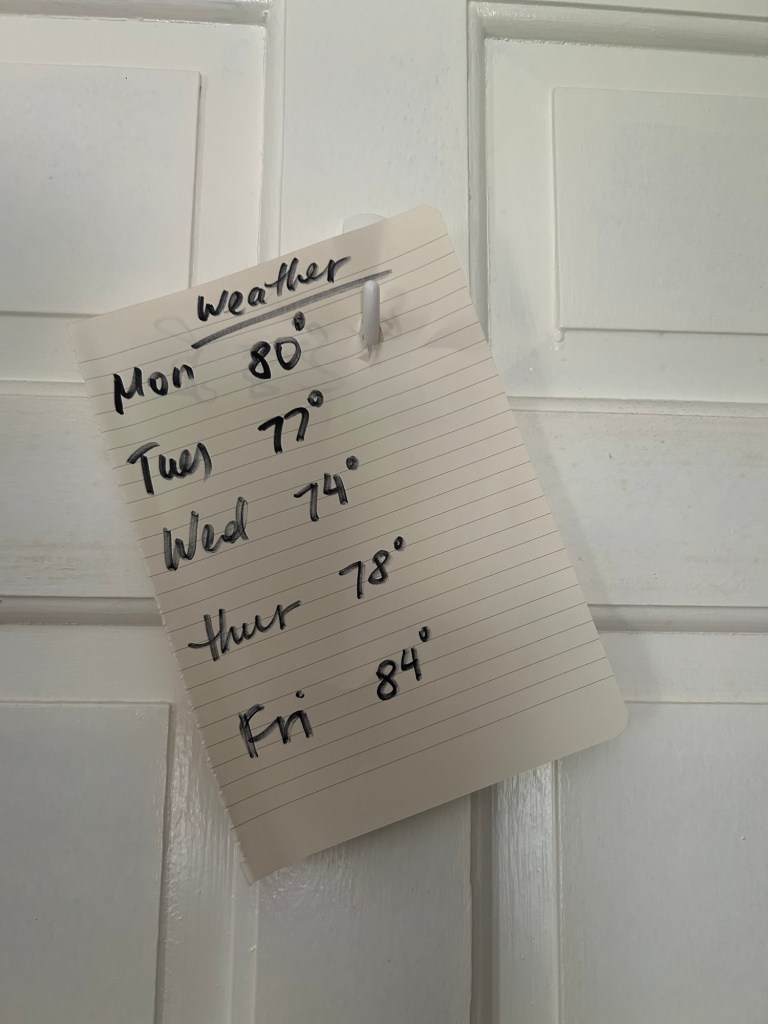 Weather
Mon 80°
Tues 77°
Wed 74°
thur 78°
Fri 84°